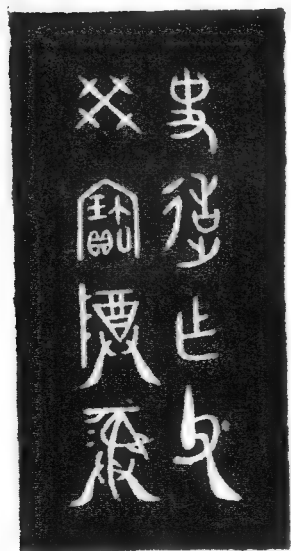 史造乍父
癸寶尊彝